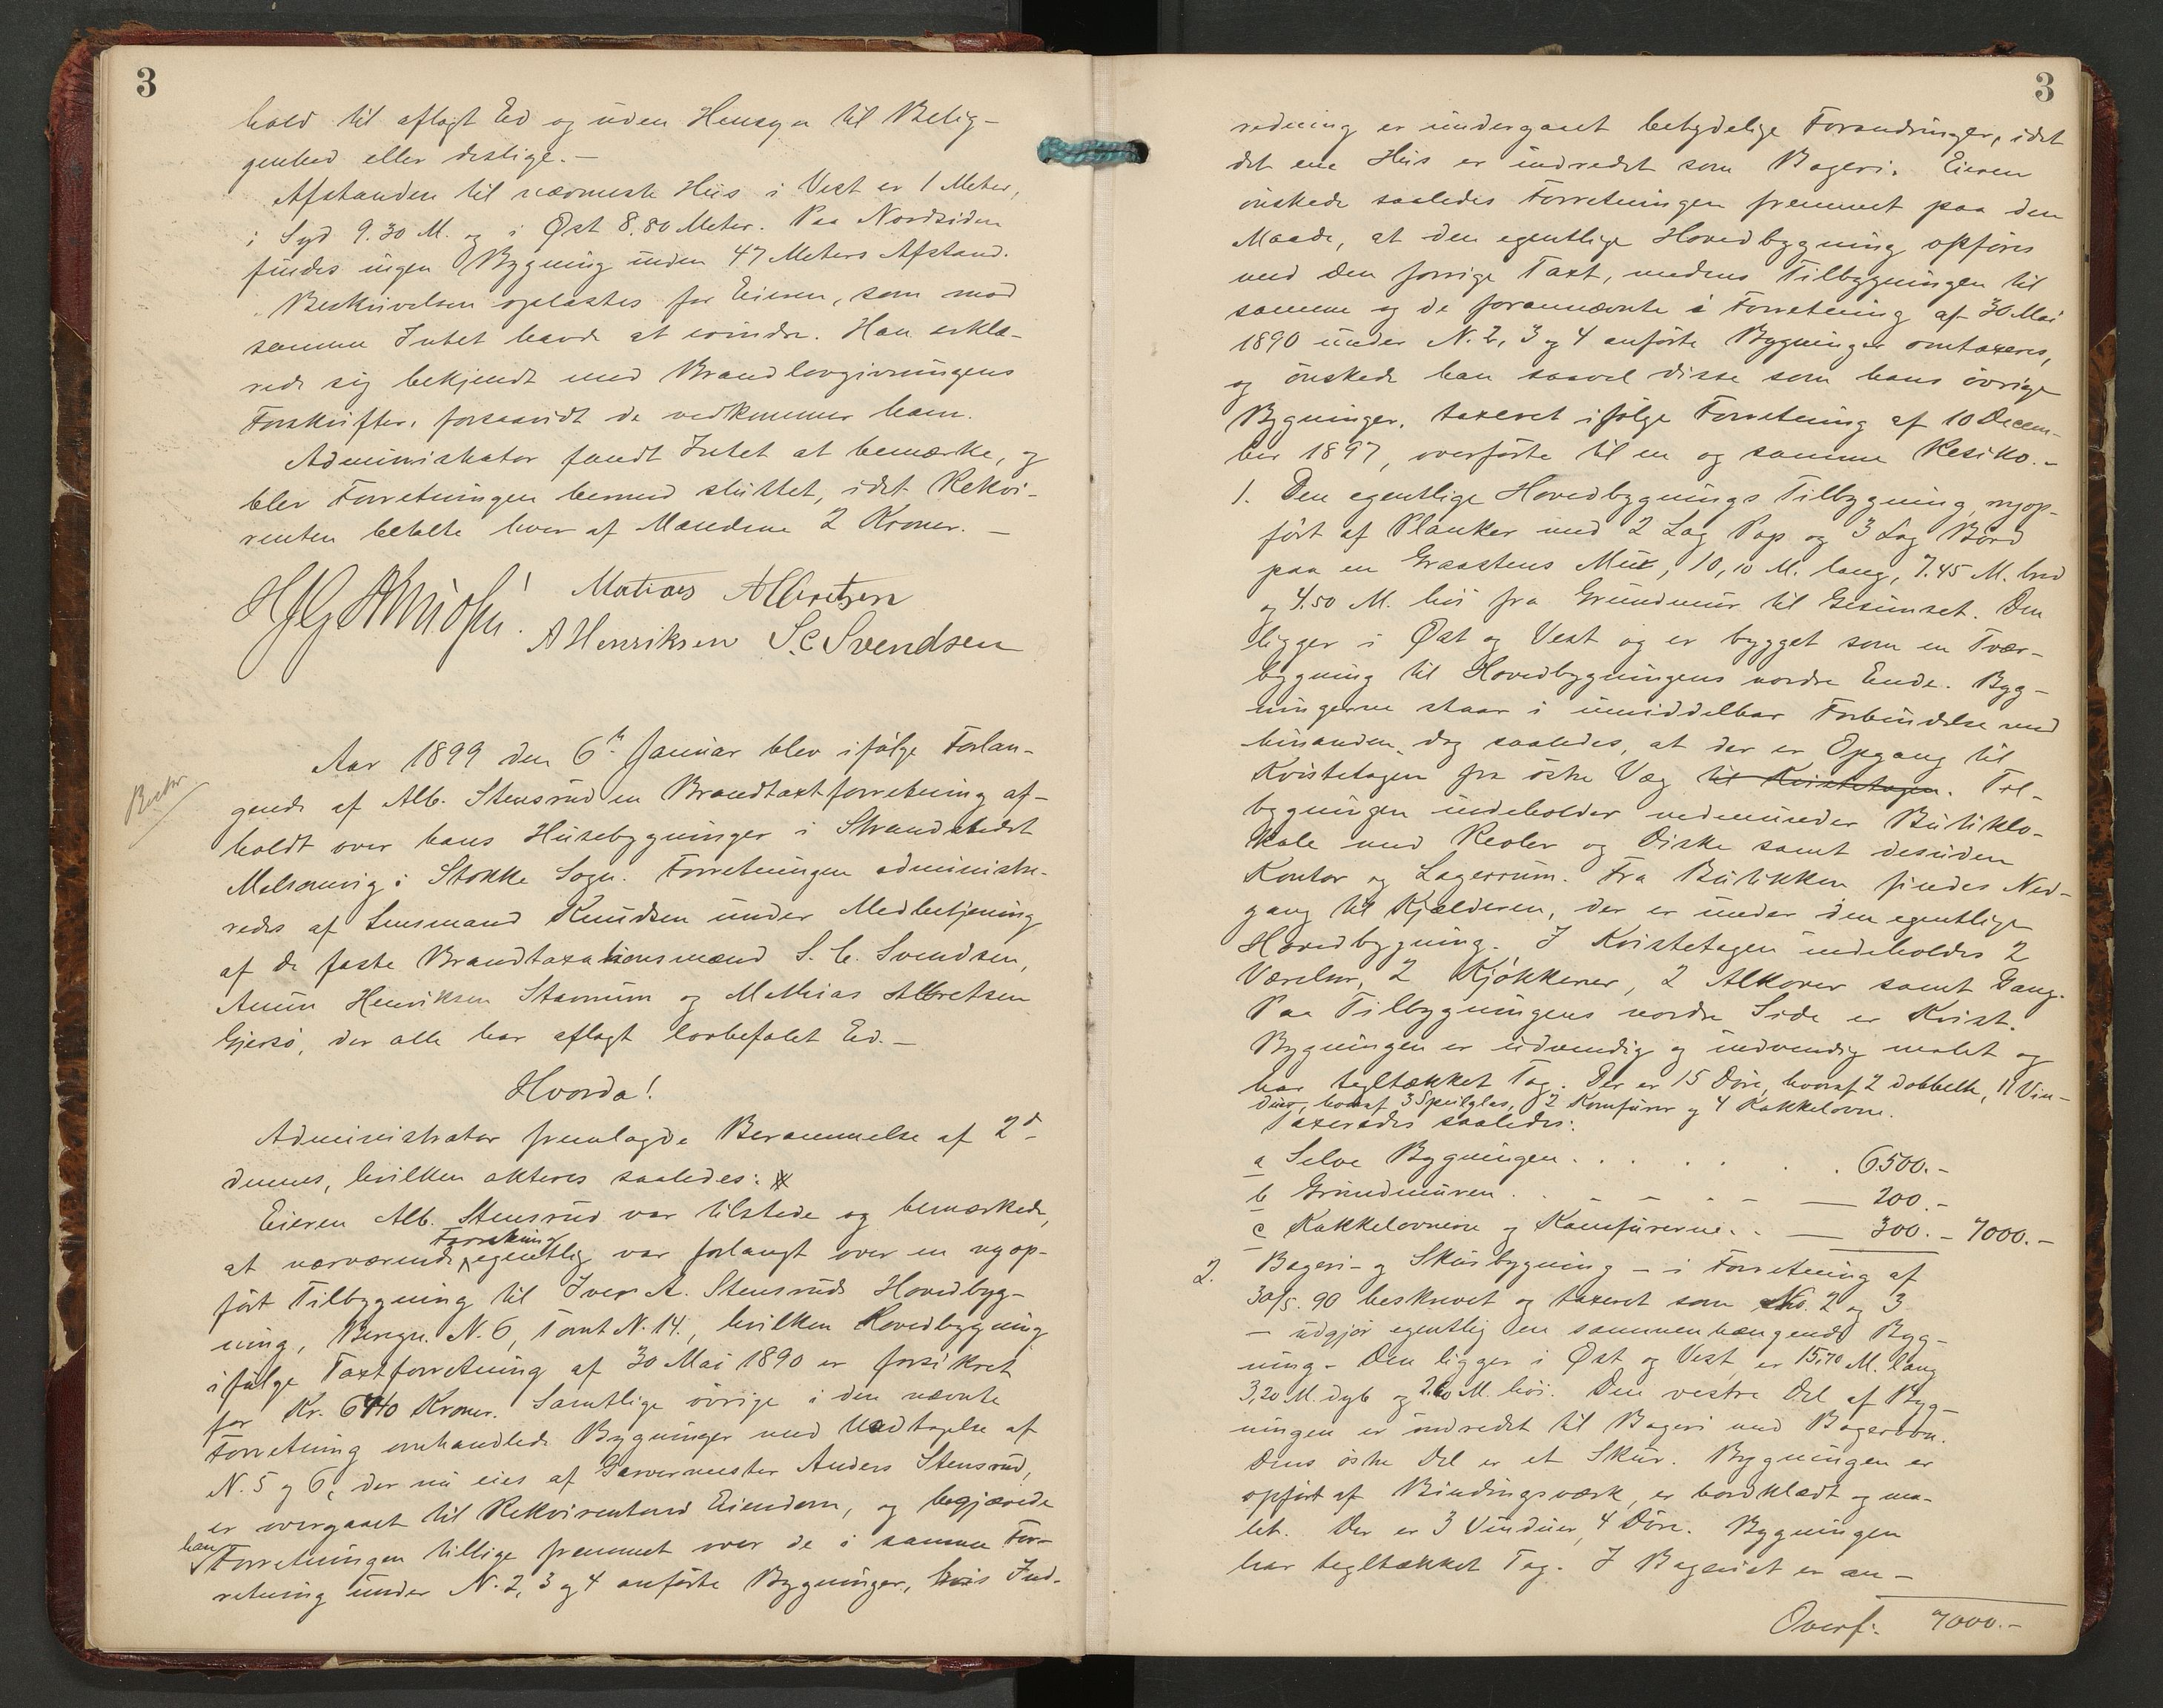 3
hold til aflagt Ed og uden Hensyn til Belig-
genhed eller deslige.-
Afstanden til nærmeste Hus i Vest er 1 Meter,
i Syd 9.30 M. og i Øst 8.80 Meter. Paa Nordsiden
findes ingen Bygning inden 47 Meters Afstand.
Beskrivelsen oplæstes for Eieren, som mod
samme Intet havde at erindre. Han erklæ-
rede sig bekjendt med Brandlovgivningens
Forskrifter, forsaavidt de vedkommer ham.
Administrator fandt Intet at bemærke, og
blev Forretningen hermed sluttet, idet Rekvi-
renten betalte hver af Mændene 2 Kroner. -
Matias Albretsen
A Henriksen S. C Svendsen
Aar 1899 den 6te Januar blev ifølge Forlan-
gende af Alb. Stensrud en Brandtaxtforretning af-
holdt over hans Husebygninger i Strandstedet
Melsomvig i Stokke Sogn. Forretningen administre-
redes af Lensmand Knudsen under Medbetjening
af de faste Brandtaxationsmænd S. C. Svendsen,
Anun Henriksen Stavnum og Mathias Albretsen
Gjersø, der alle har aflagt lovbefalet Ed. -
Hvorda!
Administrator fremlagde Berammelse af 2d
dennes, hvilken akteres saaledes:
Eieren Alb. Stensrud var tilstede og bemærkede,
at nærværende Forretning egentlig var forlangt over en nyop-
ført Tilbygning til Iver A. Stensruds Hovedbyg-
ning, Beregn. N. 6, Tomt N. 14., hvilken Hovedbygning
ifølge Taxtforretning af 30 Mai 1890 er forsikret
for Kr. 6440 Kroner. Samtlige øvrige i den nævnte
Forretning omhandlede Bygninger med Undtagelse af
N. 5 og 6, der nu eies af Garvermester Anders Stensrud,
er overgaaet til Rekvirentens Eiendom, og begjærede
han Forretningen tillige fremmet over de i samme For-
retning under N. 2, 3 og 4 anførte Bygninger, hvis Ind-
3
redning er undergaaet betydelige Forandringer, idet
det ene Hus er indredet som Bageri. Eieren
ønskede saaledes Forretningen fremmet paa den
Maade, at den egentlige Hovedbygning opføres
med den forrige Taxt, medens Tilbygningen til
samme og de forannævnte i Forretning af 30 Mai
1890 under N. 2, 3 og 4 anførte Bygninger omtaxeres,
og ønskede han saavel disse som hans øvrige
Bygninger, taxeret ifølge Forretning af 10 Decem-
ber 1897, overførte til en og samme Resiko. -
1. Den egentlige Hovedbygnings Tilbygning, nyop-
ført af Planker med 2 Lag Pap og 3 Lag Bord
paa en Graastens Mur, 10,10 M. lang, 7.45 M. bred
og 4.50 M. høi fra Grundmur til Gesimset. Den
ligger i Øst og Vest og er bygget som en Tvær-
bygning til Hovedbygningens nordre Ende. Byg-
ningerne staar i umiddelbar Forbindelse med
hinanden, dog saaledes, at der er Opgang til
Kvistetagen fra østre Væg til Kvistetagen. Til-
bygningen indeholder nedenunder Butiklo-
kale med Reoler og Diske samt desuden
Kontor og Lagerrum. Fra Butikken findes Ned-
gang til Kjælderen, der er under den egentlige
Hovedbygning. I Kvistetagen indeholdes 2
Værelser, 2 Kjøkkener, 2 Alkover samt Gang.
Paa Tilbygningens nordre Side er Kvist.
Bygningen er udvendig og indvendig malet og
har tegltækket Tag. Der er 15 Døre, hvoraf 2 dobbelte, 11 Vin-
duer, hvoraf 3 Speilglas, 2 Komfurer og 4 Kakkelovne.
Taxeredes saaledes:
a Selve Bygningen . . . . . . . 6500.-
b Grundmuren . . - - - - — 200.-
c Kakkelovnene og Komfurerne. . — 300.- 7000.-
2. Bageri- og Skurbygning - i Forretning af
30/5. 90 beskrevet og taxeret som No. 2 og 3
- udgjør egentlig en sammenhængende Byg-
ning. Den ligger i Øst og Vest, er 15.70 M. lang
3,20 M. dyb og 2.60 M. høi. Den vestre Del af Byg-
ningen er indredet til Bageri med Bagerovn.
Dens østre Del er et Skur. Bygningen er
opført af Bindingsværk, er bordklædt og ma-
let. Der er 3 Vinduer, 4 Døre. Bygningen
har tegltækket Tag. I Bageriet er an-
Overf. 7000.-